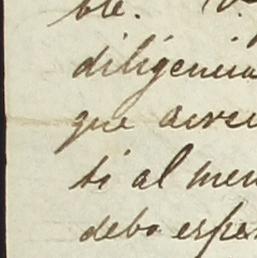 ble.
diligencia
que
si al men
debo esper